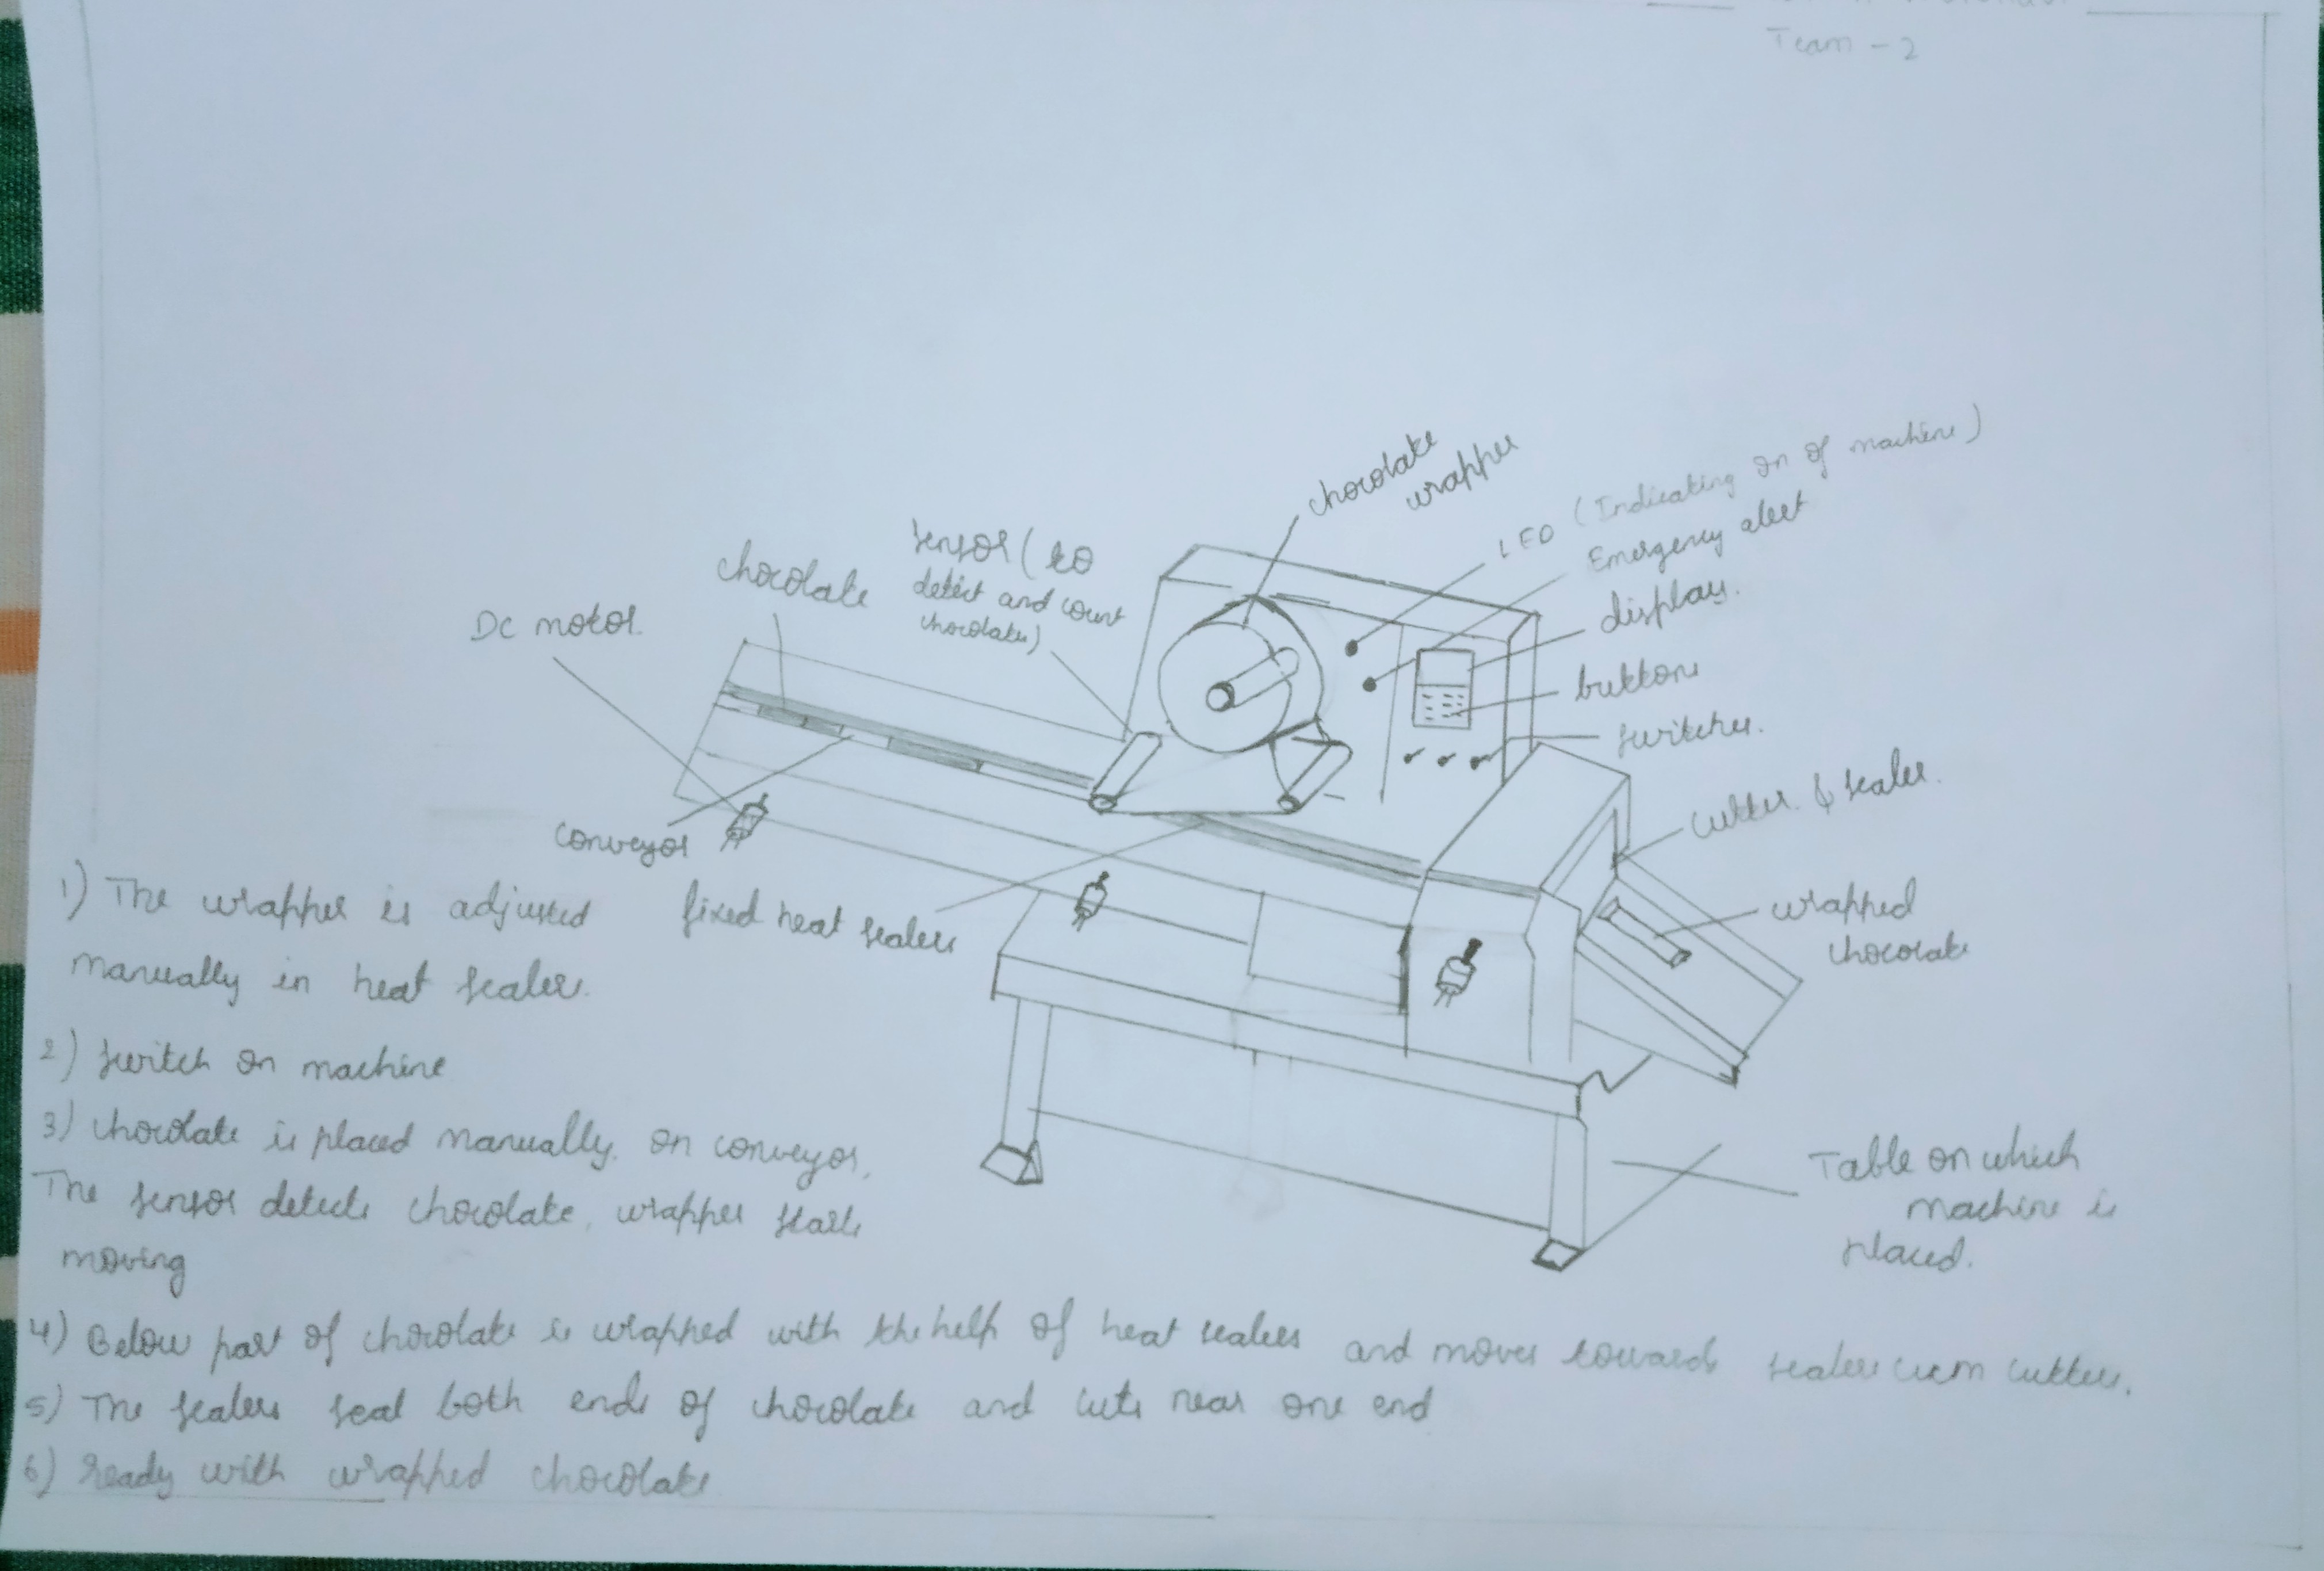 Team - 2
chocolate
wrapper
LED (Indicating on of machine)
Emergency alert
display.
buttons
switches.
cutter & sealer.
wrapped
chocolate
sensor (to
detect and count
chocolates)
chocolate
DC motor.
conveyor
fixed heat sealers
Table on which
machine is
placed.
1) The wrapper is adjusted
manually in heat sealer.
2) switch on machine
3) chocolate is placed manually on conveyor,
The sensor detects chocolate, wrapper starts
moving
4) Below part of chocolate is wrapped with the help of heat sealers and moves towards sealers cum cutters.
5) The sealers seal both ends of chocolate and cuts near one end
6) Ready with wrapped chocolate